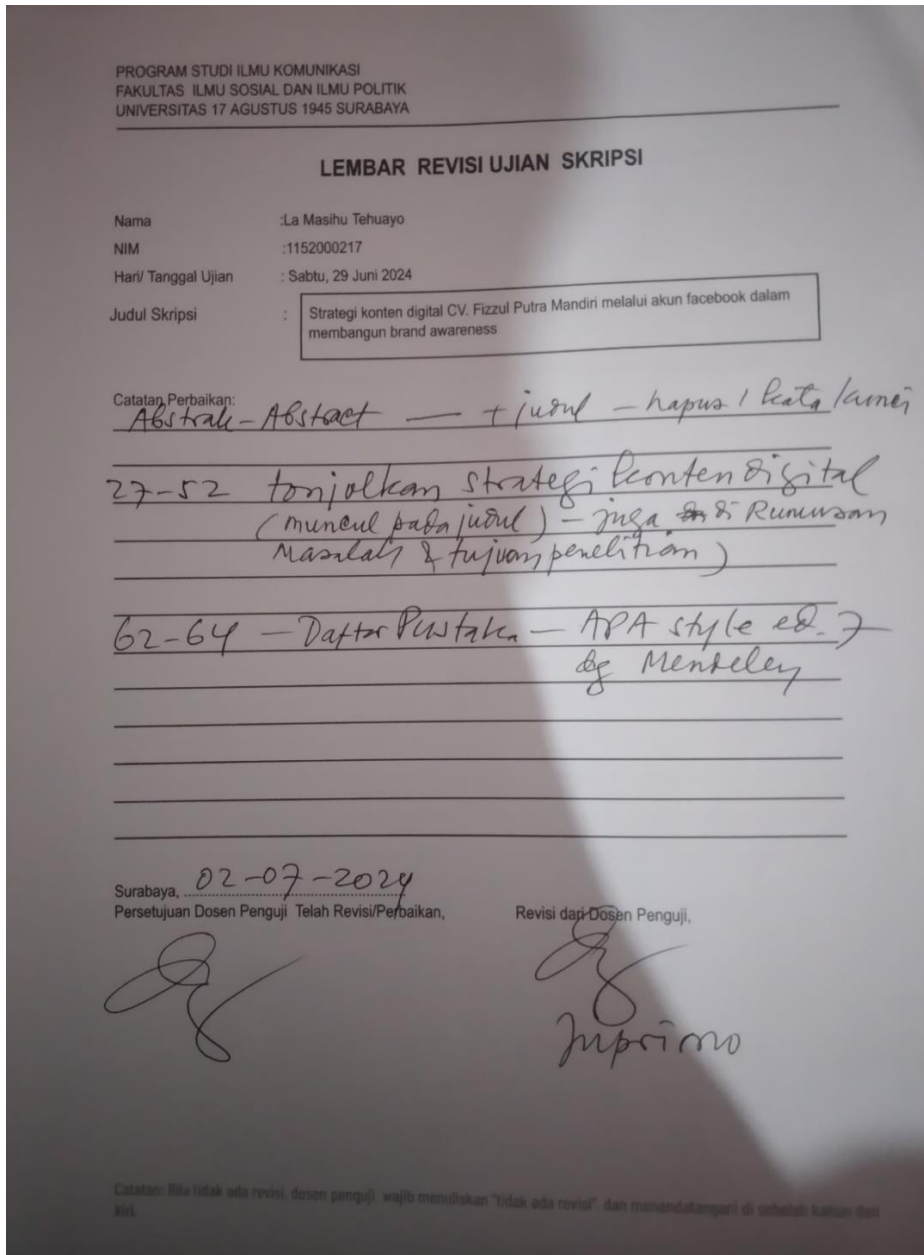 PROGRAM STUDI ILMU KOMUNIKASI
FAKULTAS ILMU SOSIAL DAN ILMU POLITIK
UNIVERSITAS 17 AGUSTUS 1945 SURABAYA
LEMBAR REVISI UJIAN SKRIPSI
Nama :La Masihu Tehuayo
NIM :1152000217
Hari/ Tanggal Ujian : Sabtu, 29 Juni 2024
Judul Skripsi : Strategi konten digital CV. Fizzul Putra Mandiri melalui akun facebook dalam
membangun brand awareness
Catatan Perbaikan:
Abstrak - Abstract — + judul - hapus 1 kata kunci
27-52 tonjolkan strategi konten digital
(muncul pada judul) - juga di Rumusan
Masalah & tujuan penelitian)
62-64 - Daftar Pustaka - APA style ed. 7
dg Mendeley
Surabaya, 02-07-2024
Persetujuan Dosen Penguji Telah Revisi/Perbaikan,
Revisi dari Dosen Penguji,
Jupriono
Catatan: Bila tidak ada revisi, dosen penguji wajib menuliskan "tidak ada revisi" dan menandatangani di sebelah kanan dan
kiri.